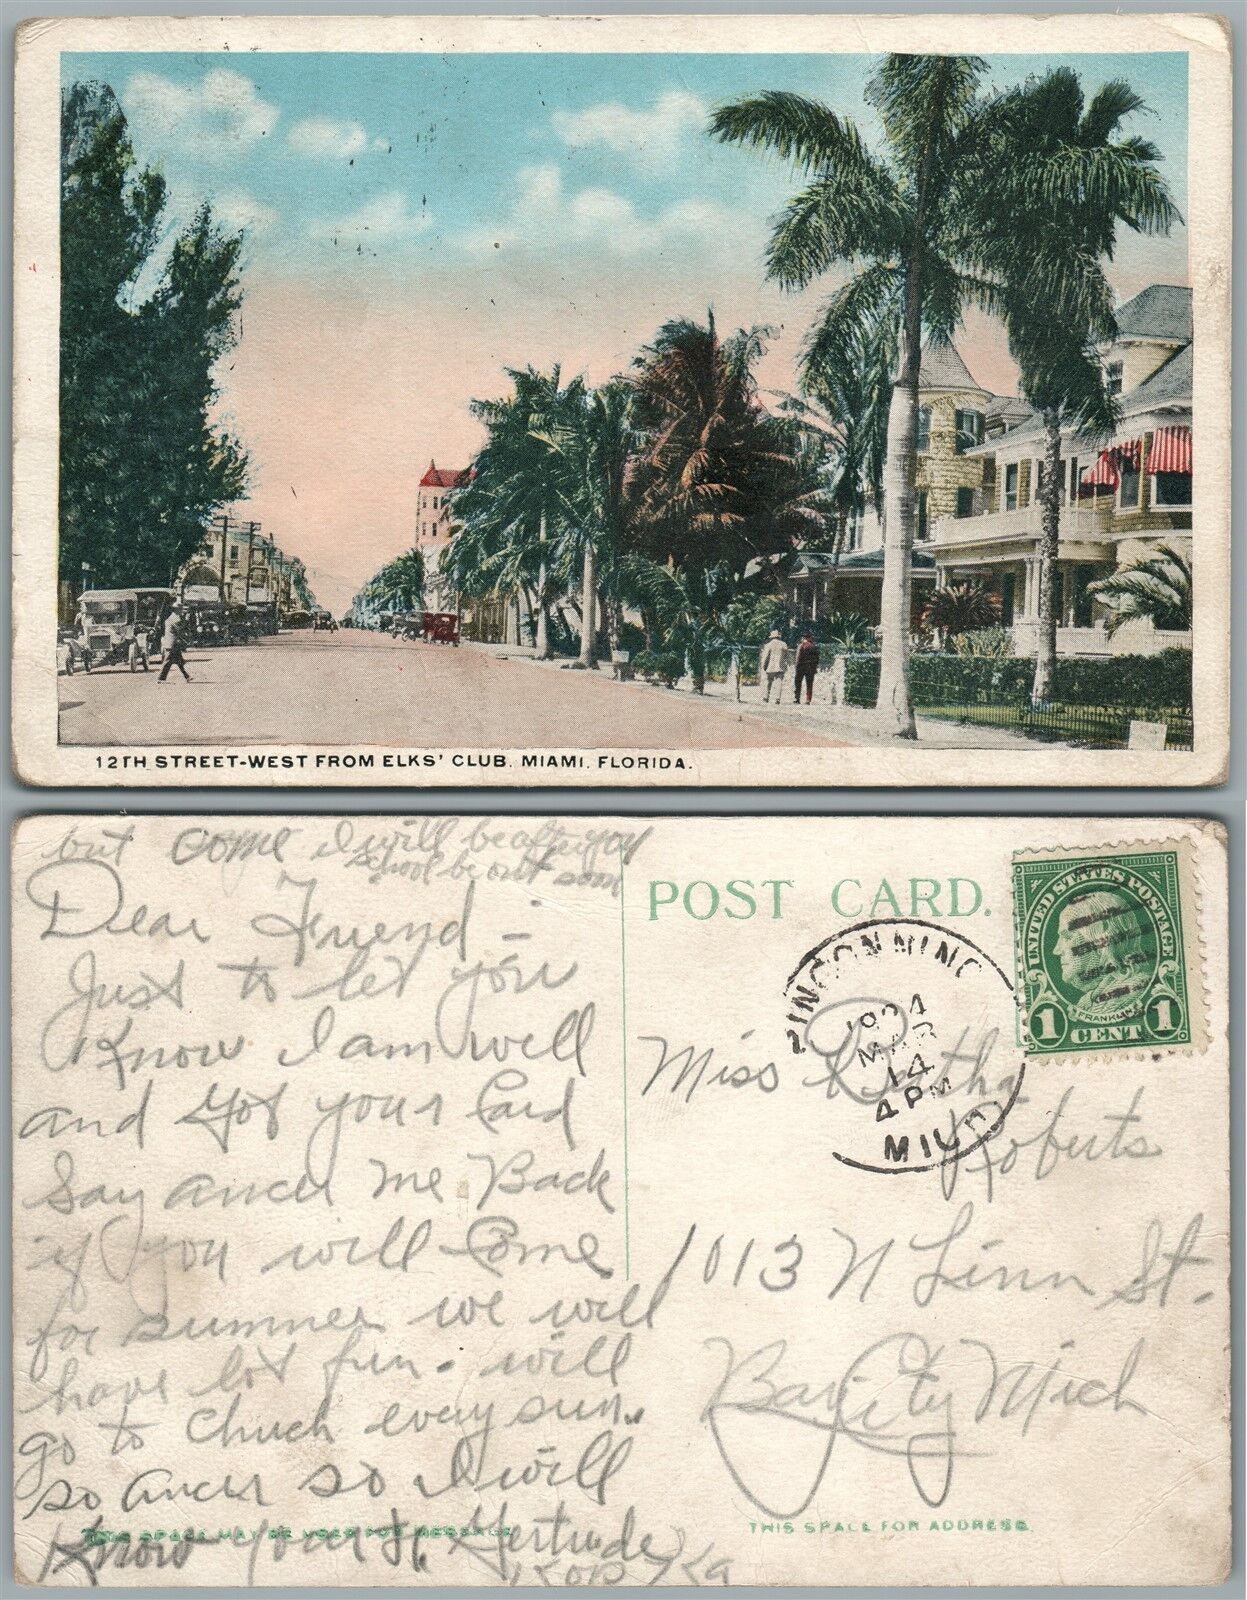 12TH STREET-WEST FROM ELKS' CLUB. MIAMI. FLORIDA.
but come I will be after you
school be out soon
Dear Friend -
Just to let you
Know I am well
and got your Card
Say ancer me Back
if you will Come
for summer we will
have lot fun. will
go to Chuch evay sun.
so ancer so I will
Know your Fr. Gertrude
THIS SPACE MAY BE USED FOR MESSAGE
POST CARD.
PINCONNING
1924
MAR
14
4 PM
MICH.
UNITED STATES POSTAGE
FRANKLIN
1 CENT 1
Miss Bertha
Roberts
1013 N Linn St.
Bay City Mich
THIS SPACE FOR ADDRESS.